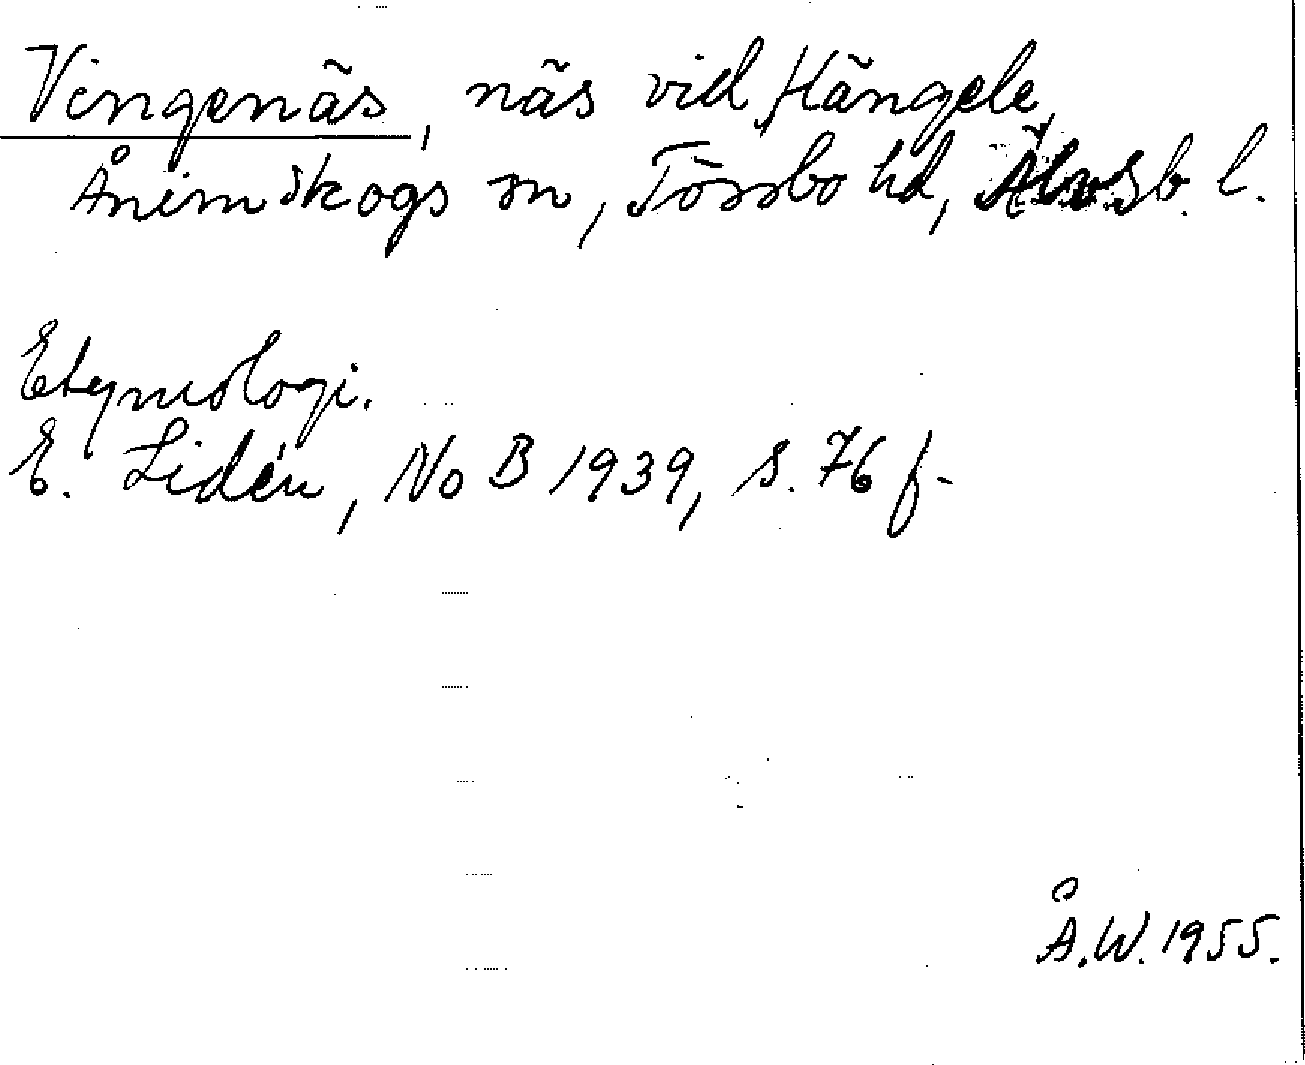 Vingenäs, näs vid Hängele,
Ånimskogs sn, Tössbo hd, Älvsb. l.
Etymologi.
E. Lidén, NoB 1939, s. 76 f.
Å.W. 1955.